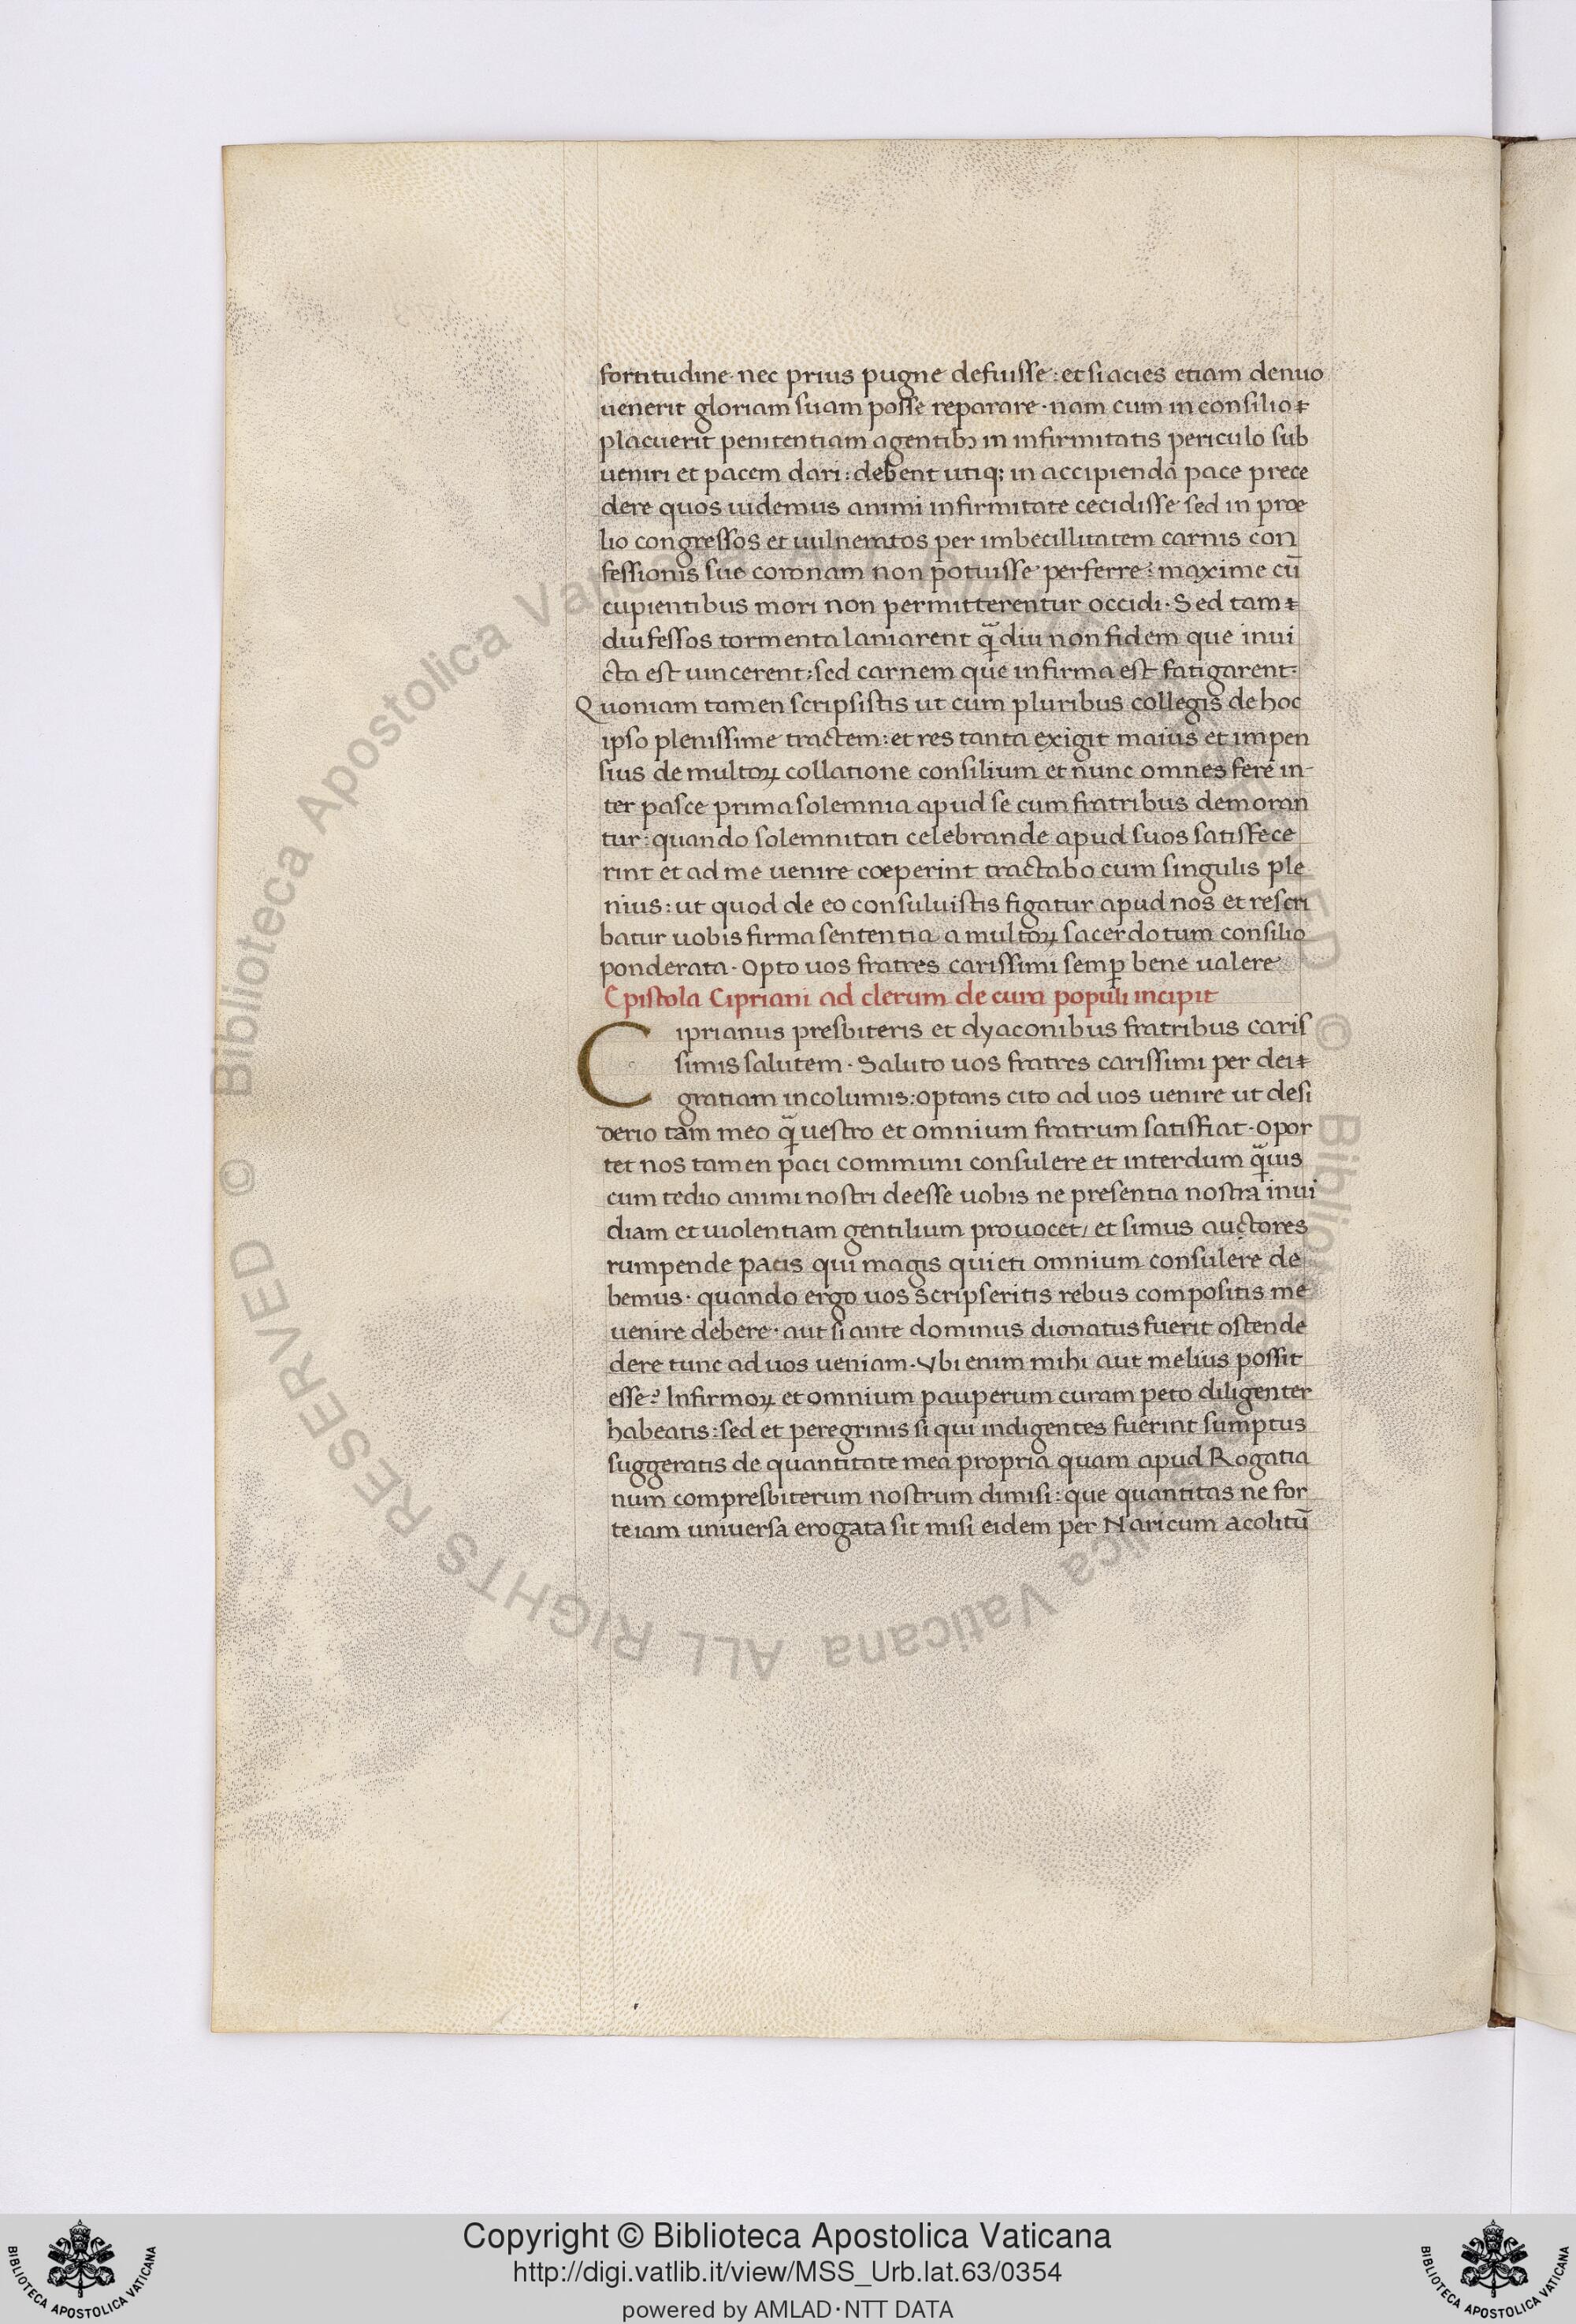 fortitudine· nec prius pugne defuisse: et si acies etiam denuo
uenerit gloriam suam posse reparare· nam cum in consilio
placuerit penitentiam agentibꝫ in infirmitatis periculo sub
ueniri et pacem dari: debent utiqꝫ in accipienda pace prece
dere quos uidemus animi infirmitate cecidisse sed in proe
lio congressos et uulneratos per imbecillitatem carnis con
fessionis sue coronam non potuisse perferre: maxime cū
cupientibus mori non permitterentur occidi· Sed tam
diu fessos tormenta laniarent q̄ diu non fidem que inui
cta est uincerent: sed carnem que infirma est fatigarent·
Quoniam tamen scripsistis ut cum pluribus collegis de hoc
ipso plenissime tractem: et res tanta exigit maius et impen
sius de multoꝝ collatione consilium et nunc omnes fere in-
ter pasce prima solemnia apud se cum fratribus demoran
tur: quando solemnitati celebrande apud suos satisfece
rint et ad me uenire coeperint tractabo cum singulis ple
nius: ut quod de eo consuluistis figatur apud nos et rescri
batur uobis firma sententia a multoꝝ sacerdotum consilio
ponderata· Opto uos fratres carissimi semꝑ bene ualere
Epistola Cipriani ad clerum de cura populi incipit
Ciprianus presbiteris et dyaconibus fratribus caris
simis salutem· Saluto uos fratres carissimi per dei
gratiam incolumis: optans cito ad uos uenire ut desi
derio tam meo q̄ uestro et omnium fratrum satisfiat· Opor
tet nos tamen paci communi consulere et interdum q̄uis
cum tedio animi nostri deesse uobis ne presentia nostra inui
diam et uiolentiam gentilium prouocet/ et simus auctores
rumpende pacis qui magis quieti omnium consulere de
bemus· quando ergo uos scripseritis rebus compositis me
uenire debere· aut si ante dominus dignatus fuerit ostende
dere tunc ad uos ueniam· Vbi enim mihi aut melius possit
esse? Infirmoꝝ et omnium pauperum curam peto diligenter
habeatis: sed et peregrinis si qui indigentes fuerint sumptus
suggeratis de quantitate mea propria quam apud Rogatia
num compresbiterum nostrum dimisi: que quantitas ne for
te iam uniuersa erogata sit misi eidem per Naricum acolitū
Copyright © Biblioteca Apostolica Vaticana
http://digi.vatlib.it/view/MSS_Urb.lat.63/0354
powered by AMLAD·NTT DATA
BIBLIOTECA APOSTOLICA VATICANA
BIBLIOTECA APOSTOLICA VATICANA
© Biblioteca Apostolica Vaticana ALL RIGHTS RESERVED © Biblioteca Apostolica Vaticana ALL RIGHTS RESERVED